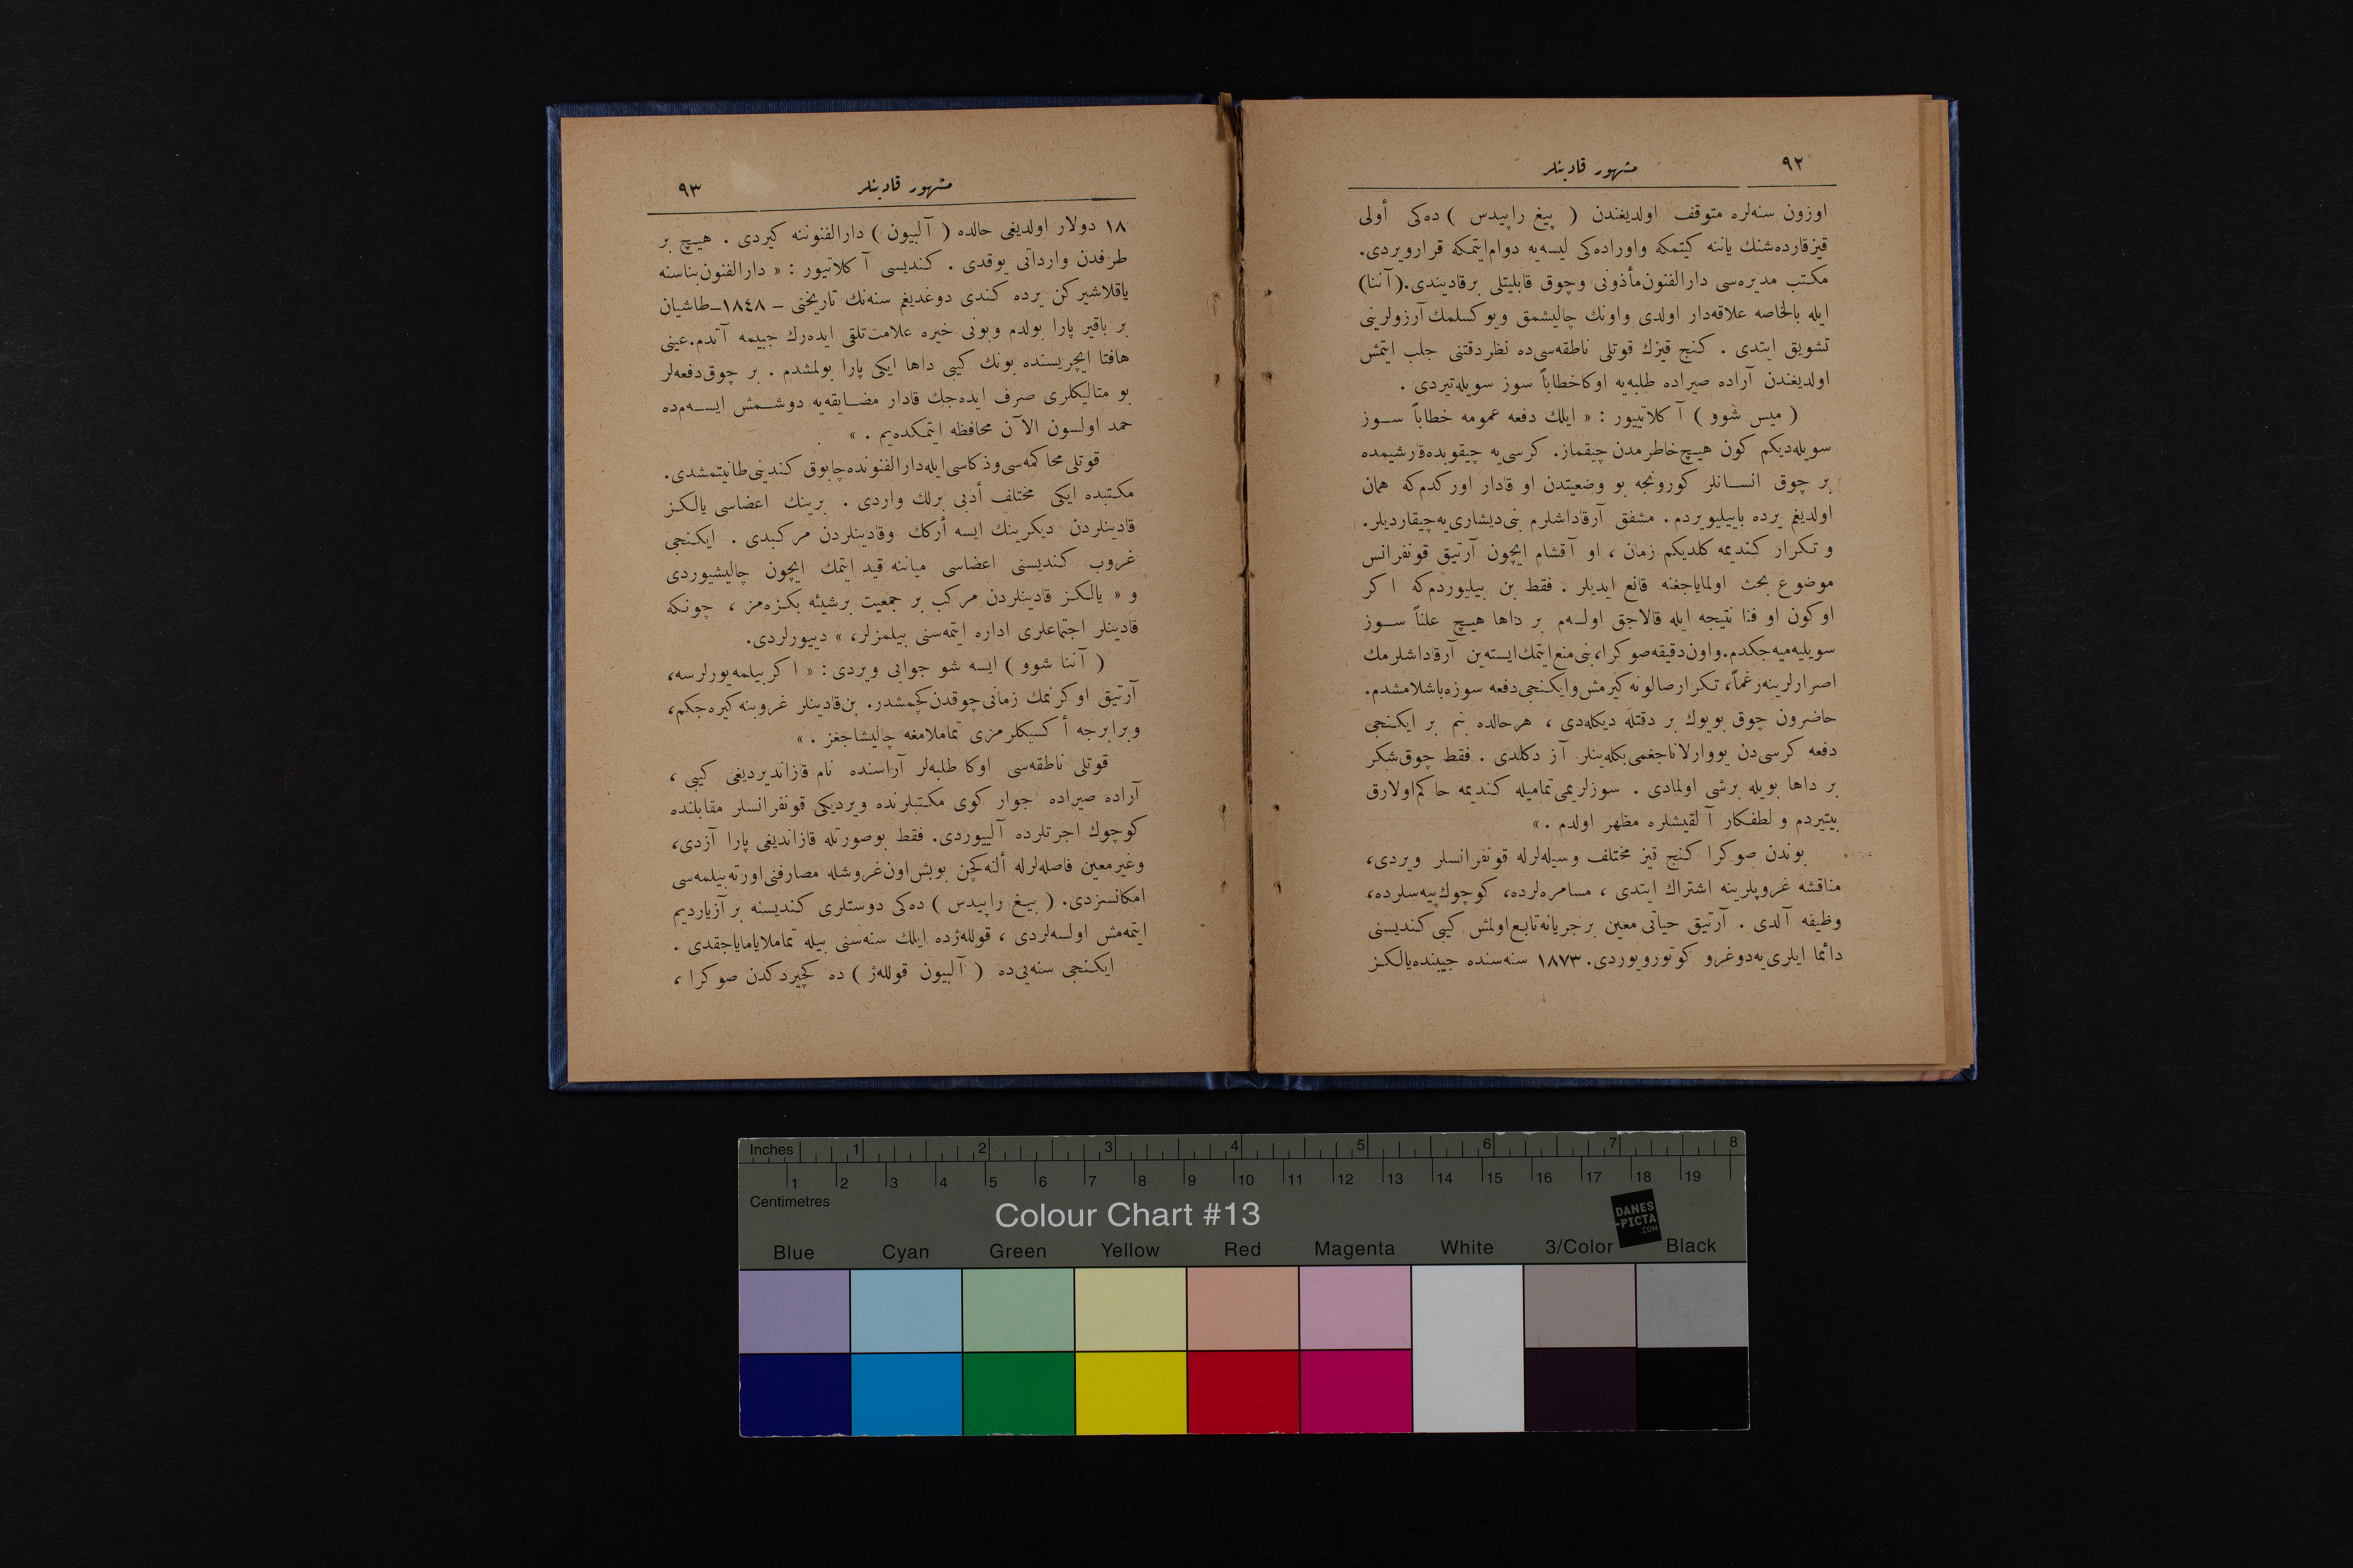 ٩٢
مشهور قادینلر
اوزون سنه‌لره متوقف اولدیغندن ( پیغ راپیدس ) ده‌کی أولی
قیزقارده‌شنك یاننه کیتمکه واوراده‌کی لیسه‌یه دوام‌ایتمکه قرارویردی.
مکتب مدیره‌سی دارالفنون‌مأذونی وچوق قابلیتلی برقادیندی.(آننا)
ایله بالخاصه علاقه‌دار اولدی واونك چالیشمق ویوکسلمك آرزولرینی
تشویق ایتدی . کنج قیزك قوتلی ناطقه‌سی‌ده نظردقتنی جلب ایتمش
اولدیغندن آراده صیراده طلبه‌یه اوکاخطاباً سوز سویله‌تیردی .
( میس شوو ) آکلاتییور : « ایلك دفعه عمومه خطاباً ســوز
سویله‌دیکم کون هیچ‌خاطرمدن چیقماز. کرسی‌یه چیقوبده‌قارشیمده
بر چوق انســانلر کورونجه بو وضعیتدن او قادار اورکدم‌که همان
اولدیغم یرده باییلیویردم. مشفق آرقاداشلرم بنی‌دیشاری‌یه‌چیقاردیلر.
و تکرار کندیمه کلدیکم زمان ، او آقشام ایچون آرتیق قونفرانس
موضوع بحث اولمایاجغنه قانع ایدیلر . فقط بن بیلیوردم‌که اکر
اوکون او فنا نتیجه ایله قالاجق اولسه‌م بر داها هیچ علناً ســوز
سویلیه‌میه‌جکدم.واون‌دقیقه‌صوکرا،بنی‌منع‌ایتمك‌ایسته‌ین آرقاداشلرمك
اصرارلرینه‌رغماً، تکرارصالونه‌کیرمش‌وایکنجی‌دفعه سوزه‌باشلامشدم.
حاضرون چوق بویوك بر دقتله دیکله‌دی ، هرحالده بنم بر ایکنجی
دفعه کرسی‌دن یووارلاناجغمی‌بکله‌ینلر آز دکلدی . فقط چوق‌شکر
بر داها بویله برشی اولمادی . سوزلریمی‌تمامیله کندیمه حاکم‌اولارق
بیتیردم و لطفکار آلقیشلره مظهر اولدم . »
بوندن صوکرا کنج قیز مختلف وسیله‌لرله قونفرانسلر ویردی،
مناقشه غروپلرینه اشتراك ایتدی ، مسامره‌لرده، کوچوك‌پیه‌سلرده،
وظیفه آلدی . آرتیق حیاتی معین برجریانه‌تابع‌اولمش کیبی کندیسنی
دائما ایلری‌یه‌دوغرو کوتورویوردی. ١٨٧٣ سنه‌سنده جیبنده‌یالکز
مشهور قادینلر
٩٣
١٨ دولار اولدیغی حالده ( آلبیون ) دارالفنوننه کیردی . هیچ بر
طرفدن وارداتی یوقدی . کندیسی آکلاتیور : « دارالفنون‌بناسنه
یاقلاشیرکن یرده کندی دوغدیغم سنه‌نك تاریخنی – ١٨٤٨–طاشیان
بر باقیر پارا بولدم وبونی خیره علامت‌تلقی ایده‌رك جیبمه آتدم.عینی
هافتا ایچریسنده بونك کیبی داها ایکی پارا بولمشدم . بر چوق‌دفعه‌لر
بو متالیکلری صرف ایده‌جك قادار مضــایقه‌یه دوشــمش ایســه‌م‌ده
حمد اولسون الآن محافظه ایتمکده‌یم . »
قوتلی محاکمه‌سی‌وذکاسی‌ایله‌دارالفنونده‌چابوق کندینی‌طانیتمشدی.
مکتبده ایکی مختلف أدبی برلك واردی . برینك اعضاسی یالکز
قادینلردن دیکرینك ایسه أرکك وقادینلردن مرکبدی . ایکنجی
غروب کندیسنی اعضاسی میاننه قید ایتمك ایچون چالیشیوردی
و « یالکز قادینلردن مرکب بر جمعیت برشیئه بکزه‌مز ، چونکه
قادینلر اجتماعلری اداره ایتمه‌سنی بیلمزلر، » دییورلردی.
( آننا شوو ) ایسه شو جوابی ویردی : « اکربیلمه‌یورلرسه،
آرتیق اوکرنمك زمانی‌چوقدن‌کچمشدر. بن‌قادینلر غروبنه‌کیره‌جکم،
وبرابرجه أکسیکلرمزی تماملامغه چالیشاجغز . »
قوتلی ناطقه‌سی اوکا طلبه‌لر آراسنده نام قازاندیردیغی کیبی ،
آراده صیراده جوار کوی مکتبلرنده ویردیکی قونفرانسلر مقابلنده
کوچوك اجرتلرده آلییوردی. فقط بوصورتله قازاندیغی پارا آزدی،
وغیرمعین فاصله‌لرله ألنه‌کچن بوبش‌اون‌غروشله مصارفنی‌اورته‌بیلمه‌سی
امکانسزدی. ( بیغ راپیدس ) ده‌کی دوستلری کندیسنه برآزیاردیم
ایتمه‌مش اولسه‌لردی ، قولله‌ژده ایلك سنه‌سنی بیله تماملایامایاجقدی .
ایکنجی سنه‌یی‌ده ( آلبیون قولله‌ژ ) ده کچیردکدن صوکرا ،
Inches 1 2 3 4 5 6 7 8
1 2 3 4 5 6 7 8 9 10 11 12 13 14 15 16 17 18 19
Centimetres
Colour Chart #13
DANES
-PICTA
.COM
Blue Cyan Green Yellow Red Magenta White 3/Color Black